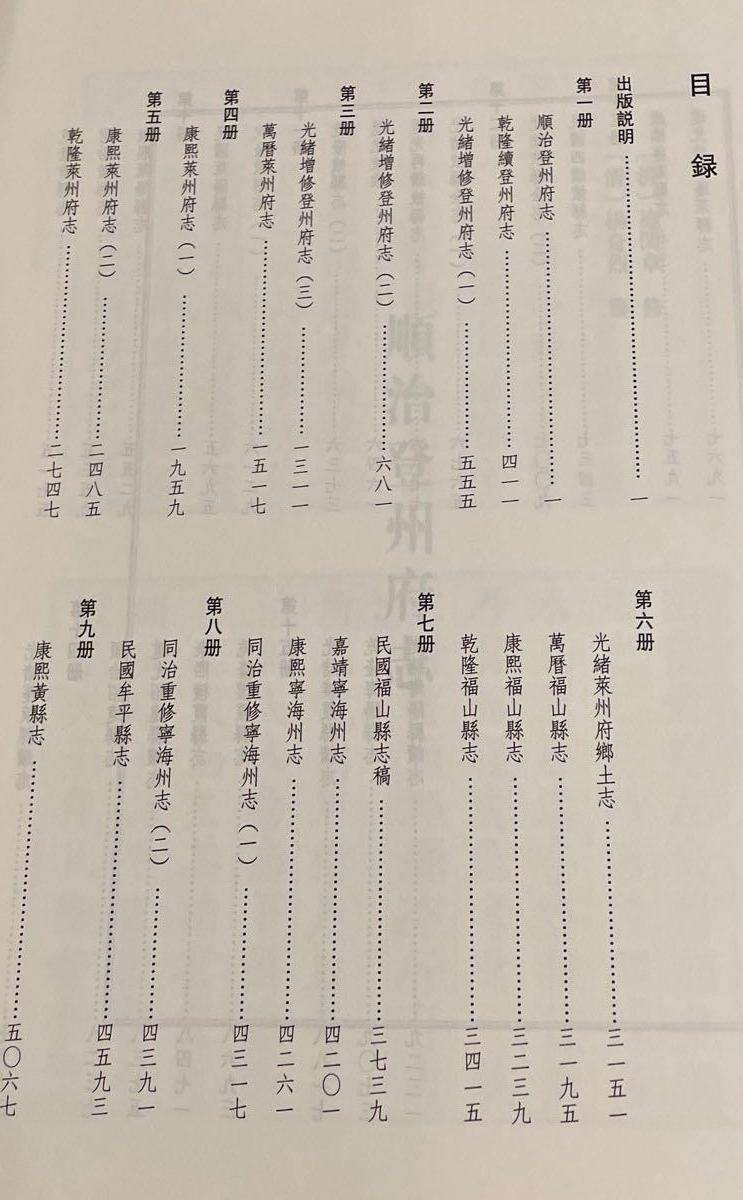 目録
出版説明……………………一
第一册
順治登州府志……………………一
乾隆續登州府志……………………四一一
光緒增修登州府志（一）……………………五五五
第二册
光緒增修登州府志（二）……………………六八一
第三册
光緒增修登州府志（三）……………………一三一一
萬曆萊州府志……………………一五一七
第四册
康熙萊州府志（一）……………………一九五九
第五册
康熙萊州府志（二）……………………二四八五
乾隆萊州府志……………………二七四七
第六册
光緒萊州府鄉土志……………………三一五一
萬曆福山縣志……………………三一九五
康熙福山縣志……………………三二三九
乾隆福山縣志……………………三四一五
第七册
民國福山縣志稿……………………三七三九
嘉靖寧海州志……………………四二〇一
康熙寧海州志……………………四二六一
同治重修寧海州志（一）……………………四三一七
第八册
同治重修寧海州志（二）……………………四三九一
民國牟平縣志……………………四五九三
第九册
康熙黃縣志……………………五〇六七
順治登州府志